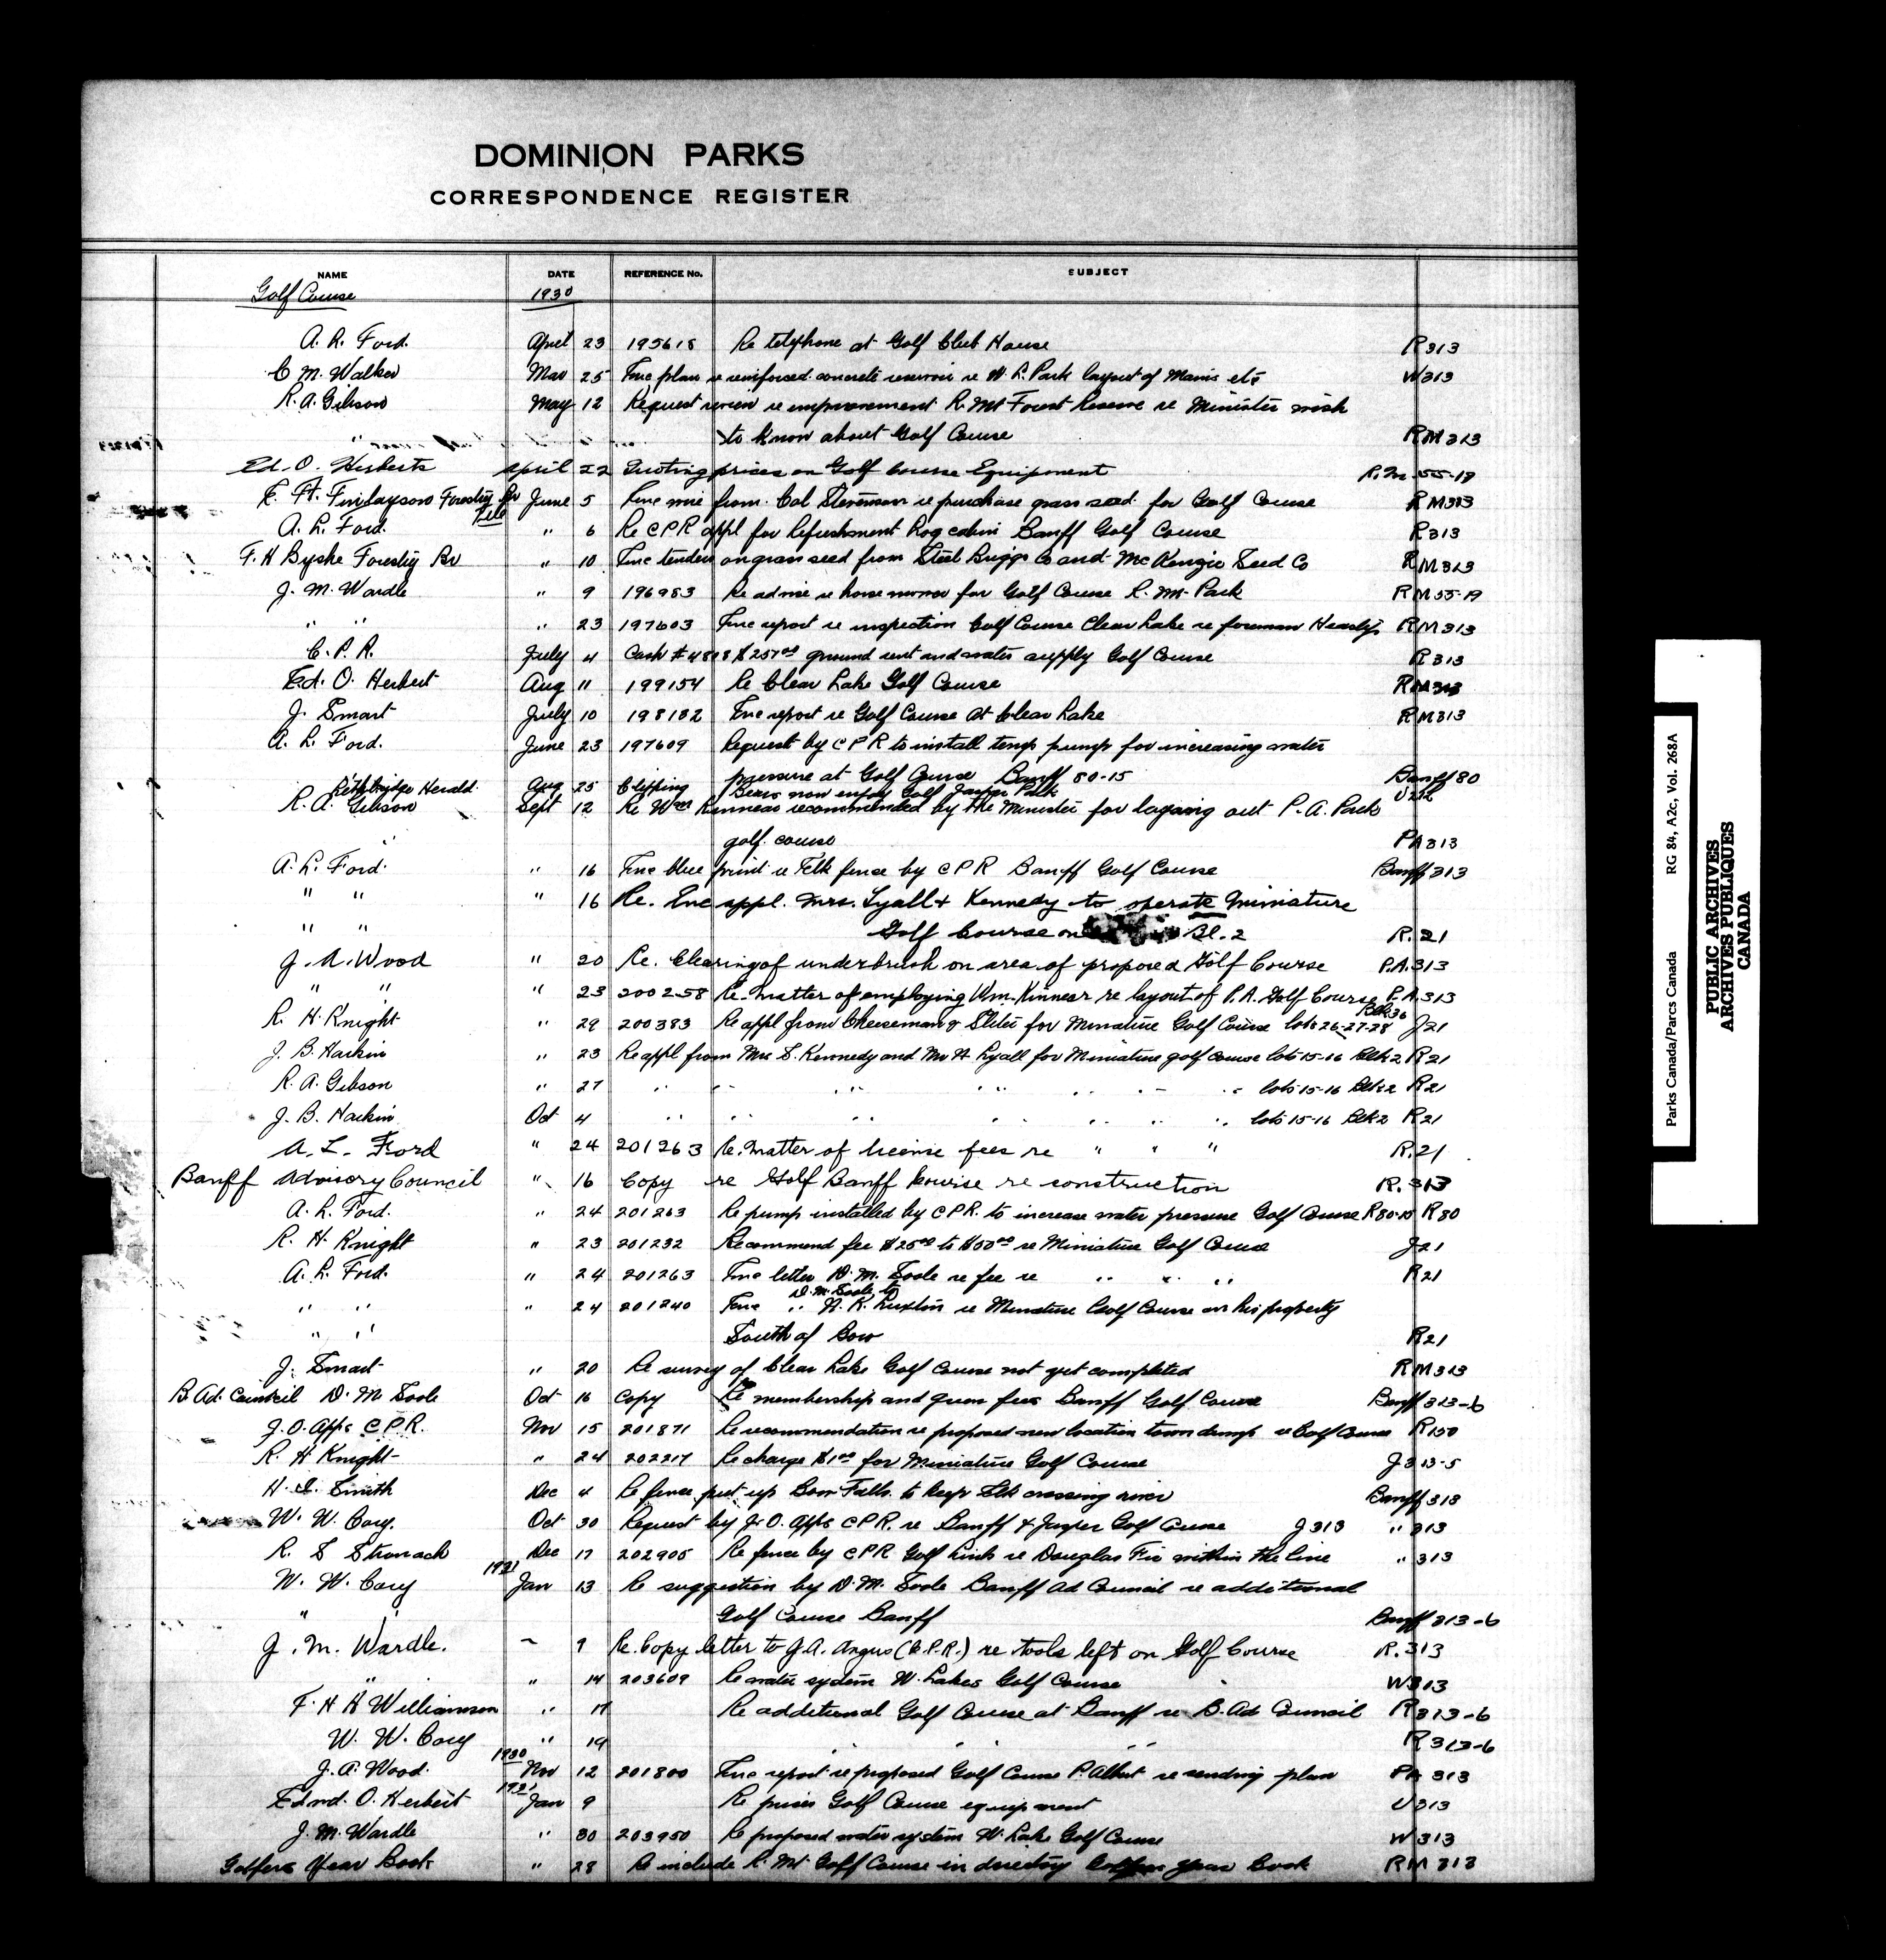 DOMINION PARKS
CORRESPONDENCE REGISTER
NAME DATE REFERENCE No. SUBJECT
Golf Course 1930
A. L. Ford. April 23 195618 Re telephone at Golf Club House R313
C M. Walker Mar 25 Enc plan re reinforced concrete reservoir re W. L. Park layout of Mains etc W313
R. A. Gibson May 12 Request review re improvement R. Mt Forest Reserve re Minister wish
" to know about Golf Course RM313
Ed. O. Herberts April 22 Quoting prices on Golf Course Equipment R.M. 55-19
E. H. Finlayson Forestry Br June 5 Enc mie from Col Stevenson re purchase grass seed for Golf Course RM313
File
A. L. Ford. " 6 Re CPR appl for Refreshment Log cabin Banff Golf Course R313
F. H Byshe Forestry Br " 10 Enc tenders on grass seed from Steel Briggs Co and McKenzie Seed Co RM313
J. M. Wardle " 9 196983 Re advise re horse mower for Golf Course R. M. Park RM55-19
" " " 23 197603 Enc report re inspection Golf Course Clear Lake re foreman RM313
C. P. R. July 4 Cash #4818 $257.00 ground rent and water supply Golf Course R313
Ed. O. Herbert Aug 11 199154 Re Clear Lake Golf Course RM313
J. Smart July 10 198182 Enc report re Golf Course at Clear Lake RM313
A. L. Ford. June 23 197609 Request by CPR to install temp pump for increasing water
pressure at Golf Course Banff 80-15 Banff 80
Lethbridge Herald. Aug 25 Clipping Bears now enjoy Golf Jasper Park U212
R. A. Gibson Sept 12 Re Wm Kinnear recommended by the Minister for laying out P. A. Park
" golf course PA313
A. L. Ford. " 16 Enc blue print re Elk fence by CPR Banff Golf Course Banff 313
" " " 16 Re. Enc appl. Mrs. Lyall & Kennedy to operate Miniature
" " Golf Course on Bl. 2 R.21
J. A. Wood " 20 Re. Clearing of underbrush on area of proposed Golf Course P.A.313
" " " 23 200258 Re. Matter of employing Wm. Kinnear re layout of P.A. Golf Course P.A.313
Blk 36
R. H. Knight " 29 200383 Re appl from Cheeseman & Sliter for Minature Golf Course lots 26-27-28 J21
J. B. Harkin " 23 Re appl from Mrs S. Kennedy and Mr H. Lyall for Miniature golf course lots 15-16 Blk 2 R21
R. A. Gibson " 27 " " " " " " " lots 15-16 Blk 2 R21
J. B. Harkin Oct 4 " " " " " " " lots 15-16 Blk 2 R21
A. L. Ford " 24 201263 Re. Matter of license fees re " " " R.21
Banff Advisory Council " 16 Copy re Golf Banff Course re construction R.313
A. L. Ford. " 24 201263 Re pump installed by CPR. to increase water pressure Golf Course R80-15 R80
R. H. Knight " 23 201232 Recommend fee $25.00 to $50.00 re Miniature Golf Course J21
A. L. Ford. " 24 201263 Enc letter D. M. Soole re fee re " " " R21
D. M. Soole to
" " " 24 201240 Enc " N. K. Luxton re Minature Golf Course on his property
" " South of Bow R21
J. Smart " 20 Re survey of Clear Lake Golf Course not yet completed RM313
B. Ad. Council D. M Soole Oct 16 Copy Re membership and green fees Banff Golf Course Banff 313-6
J. O. Apps C P R. Nov 15 201871 Re recommendation re proposed new location town dump re Golf Course R150
R. H Knight " 24 202217 Re charge $1.00 for Miniature Golf Course J313-5
H. S. Smith Dec 4 Re fence put up Bow Falls to keep Elk crossing river Banff 313
W. W. Cory. Oct 30 Request by J. O. Apps CPR. re Banff & Jasper Golf Course J313 " 313
R. S Stronach Dec 17 202905 Re fence by CPR Golf Links re Douglas Fir within the line " 313
1931
W. W. Cory Jan 13 Re suggestion by D. M. Soole Banff Ad Council re additional
" " Golf Course Banff Banff 313-6
J. M. Wardle. " 9 Re. Copy letter to J. A. Angus (C.P.R.) re tools left on Golf Course R.313
" " 14 203609 Re water system W. Lakes Golf Course W313
F. H H Williamson " 17 Re additional Golf Course at Banff re B. Ad Council R313-6
W. W. Cory " 19 " " " " R313-6
1930
J. A. Wood. Nov 12 201800 Enc report re proposed Golf Course P. Albert re sending plan PA 313
1931
Edmd. O. Herbert Jan 9 Re prices Golf Course equipment U313
J. M. Wardle " 30 203950 Re proposed water system W. Lake Golf Course W313
Golfers Year Book " 28 Re include R. Mt Golf Course in directory Golfers Year Book RM 313
Parks Canada/Parcs Canada RG 84, A2c, Vol. 268A
PUBLIC ARCHIVES
ARCHIVES PUBLIQUES
CANADA